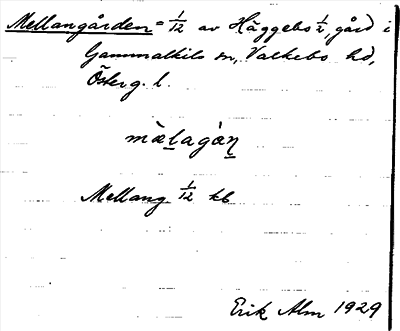 Mellangården = 1/12 av Häggebo 1/2, gård i
Gammalkils sn, Valkebo hd,
Österg. l.
mæ̀lagàn̠
Mellang 1/12 kb
Erik Alm 1929